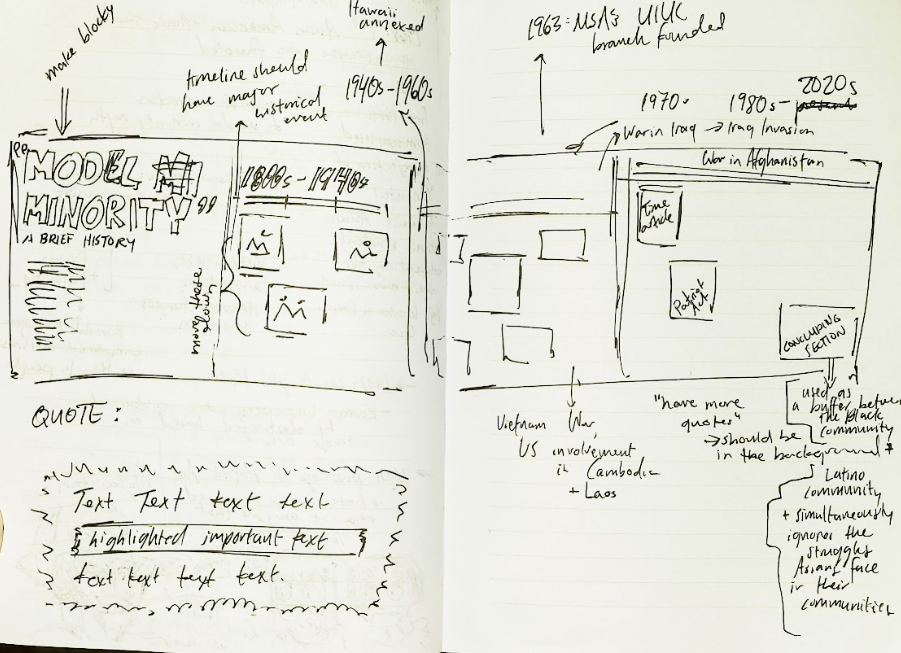 make blocky
timeline should
have major
historical
event
Hawaii
annexed
1940s-1960s
MODEL MI
MINORITY"
A BRIEF HISTORY
1800s-1940s
QUOTE:
Text Text text text
highlighted important text
text text text text.
1963: MSA's UIUC
branch founded
1970s
1980s-
2020s
present
War in Iraq → Iraq Invasion
War in Afghanistan
time
article
Patriot
Act
CONCLUDING
SECTION
Vietnam War,
US involvement
in Cambodia
+ Laos
"have more
quotes"
→ should be
in the background *
used as
a buffer between
the black
community
Latino
community
+ simultaneously
ignores the
struggles
Asians face
in their
communities